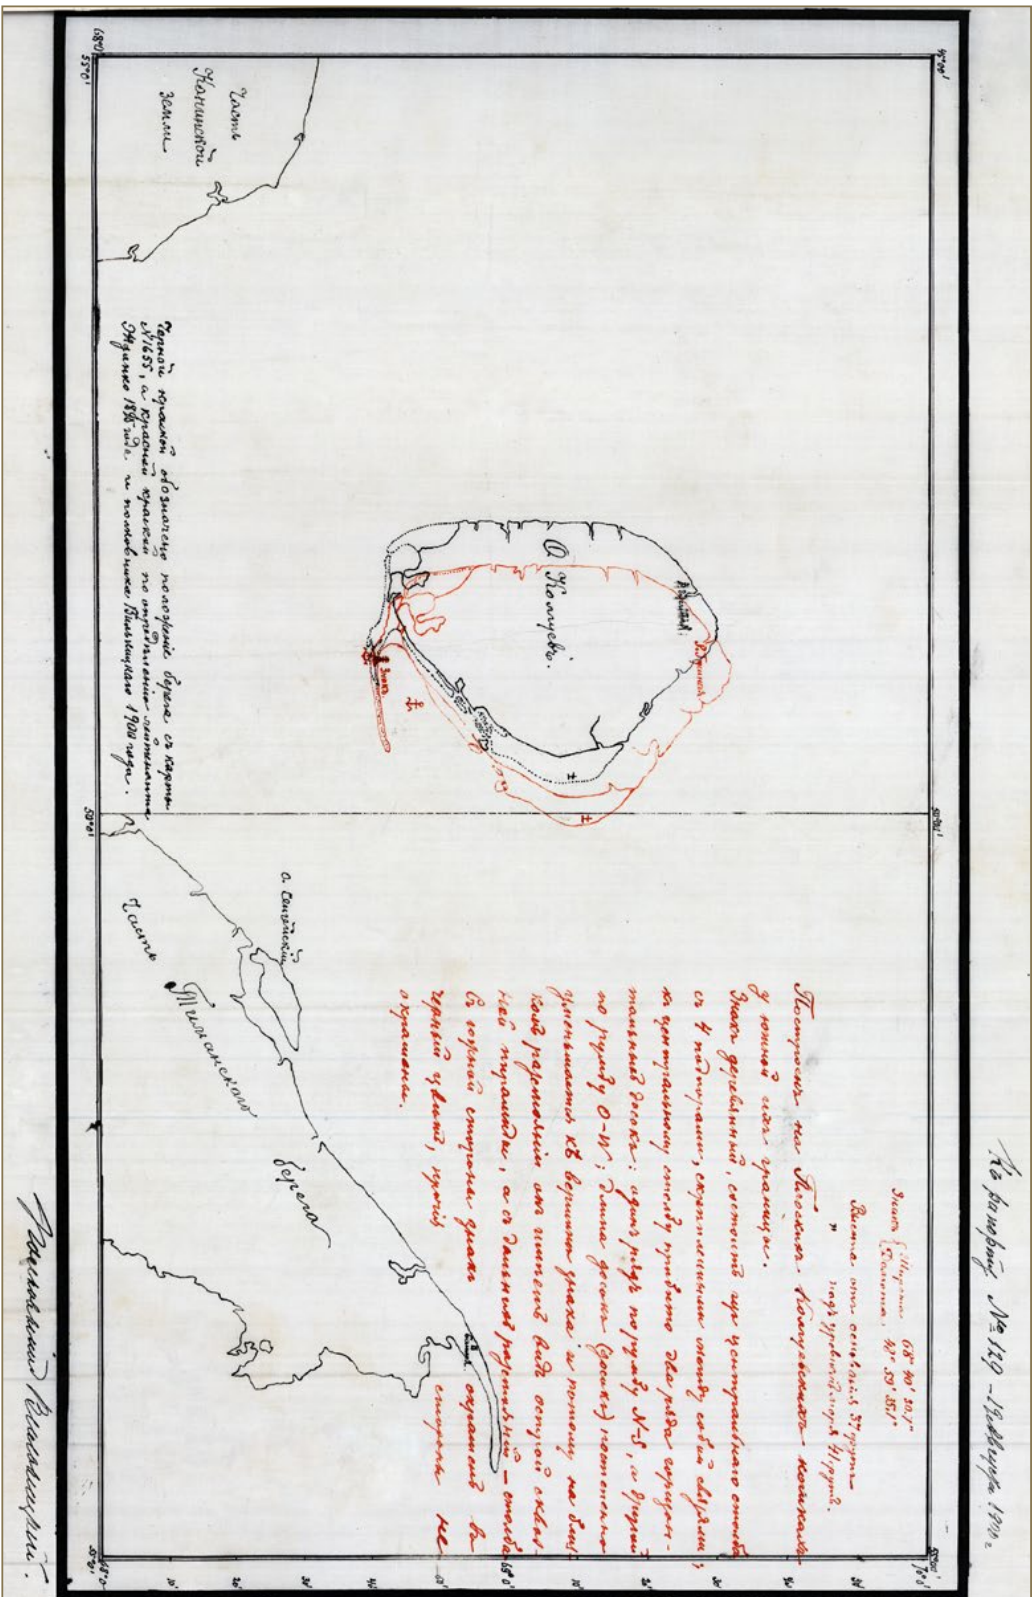 Къ рапорту № 129 – 1900 г
Знакъ { Широта 68° 40′ 20.7″
Долгота 49°
Высота отъ основанія 37 футъ
" надъ уровнемъ моря 41 футъ.
Построенъ на Плоскихъ Колгуевскихъ кошкахъ
у южной ихъ границы.
Знакъ деревянный, состоитъ изъ центральнаго столба
съ 4 подпорами, скрепленными между собой связями;
къ центральному столбу прибито два ряда горизон-
тальныхъ досокъ: одинъ рядъ по румбу N-S, а другой
по румбу O-W; длина досокъ постепенно
уменьшается къ вершинѣ знака и потому на близ-
комъ разстояніи онъ имѣетъ видъ острой сквоз-
ной пирамиды, а съ дальнихъ разстояній – столба
Съ стороны знакъ окрашенъ въ
черный цвѣтъ, прочія стороны не
окрашены.
45°00′
50°00′
55°00′
70°0′
68°0′
55°0′
50°0′
10′
20′
30′
40′
69°0′
10′
20′
30′
40′
50′
Часть
Канинской
земли
О Колгуевъ.
Знакъ
Черной краской обозначено положеніе берега съ карты
№1655, а красной краской по опредѣленію лейтенанта
Жданко 1895 года и полковника Вилькицкаго 1900 года.
о. Сенгейскій
Часть Тиманскаго берега
Полковникъ Вилькицкій.